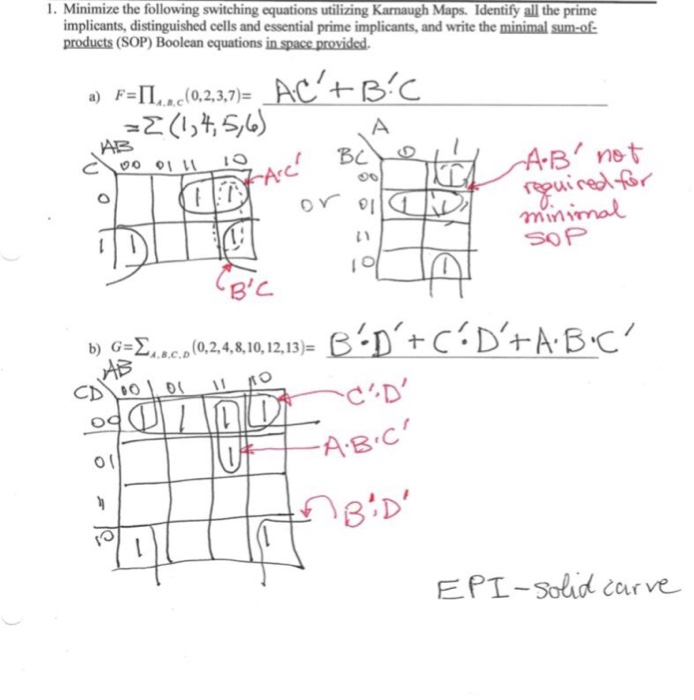 1. Minimize the following switching equations utilizing Karnaugh Maps. Identify all the prime
implicants, distinguished cells and essential prime implicants, and write the minimal sum-of-
products (SOP) Boolean equations in space provided.
a) F=∏A,B,C(0,2,3,7)= AC'+B'C
=Σ(1,4,5,6)
AB
C 00 01 11 10
0 1 1
1 1 1
A·C'
B'C
or
A
BC 0 1
00 1
01 1 1
11
10 1
A·B' not
required for
minimal
SOP
b) G=∑A,B,C,D(0,2,4,8,10,12,13)= B'·D'+C'·D'+A·B·C'
AB
CD 00 01 11 10
00 1 1 1 1
01 1
11
10 1 1
C'·D'
A·B·C'
B'·D'
EPI-solid curve